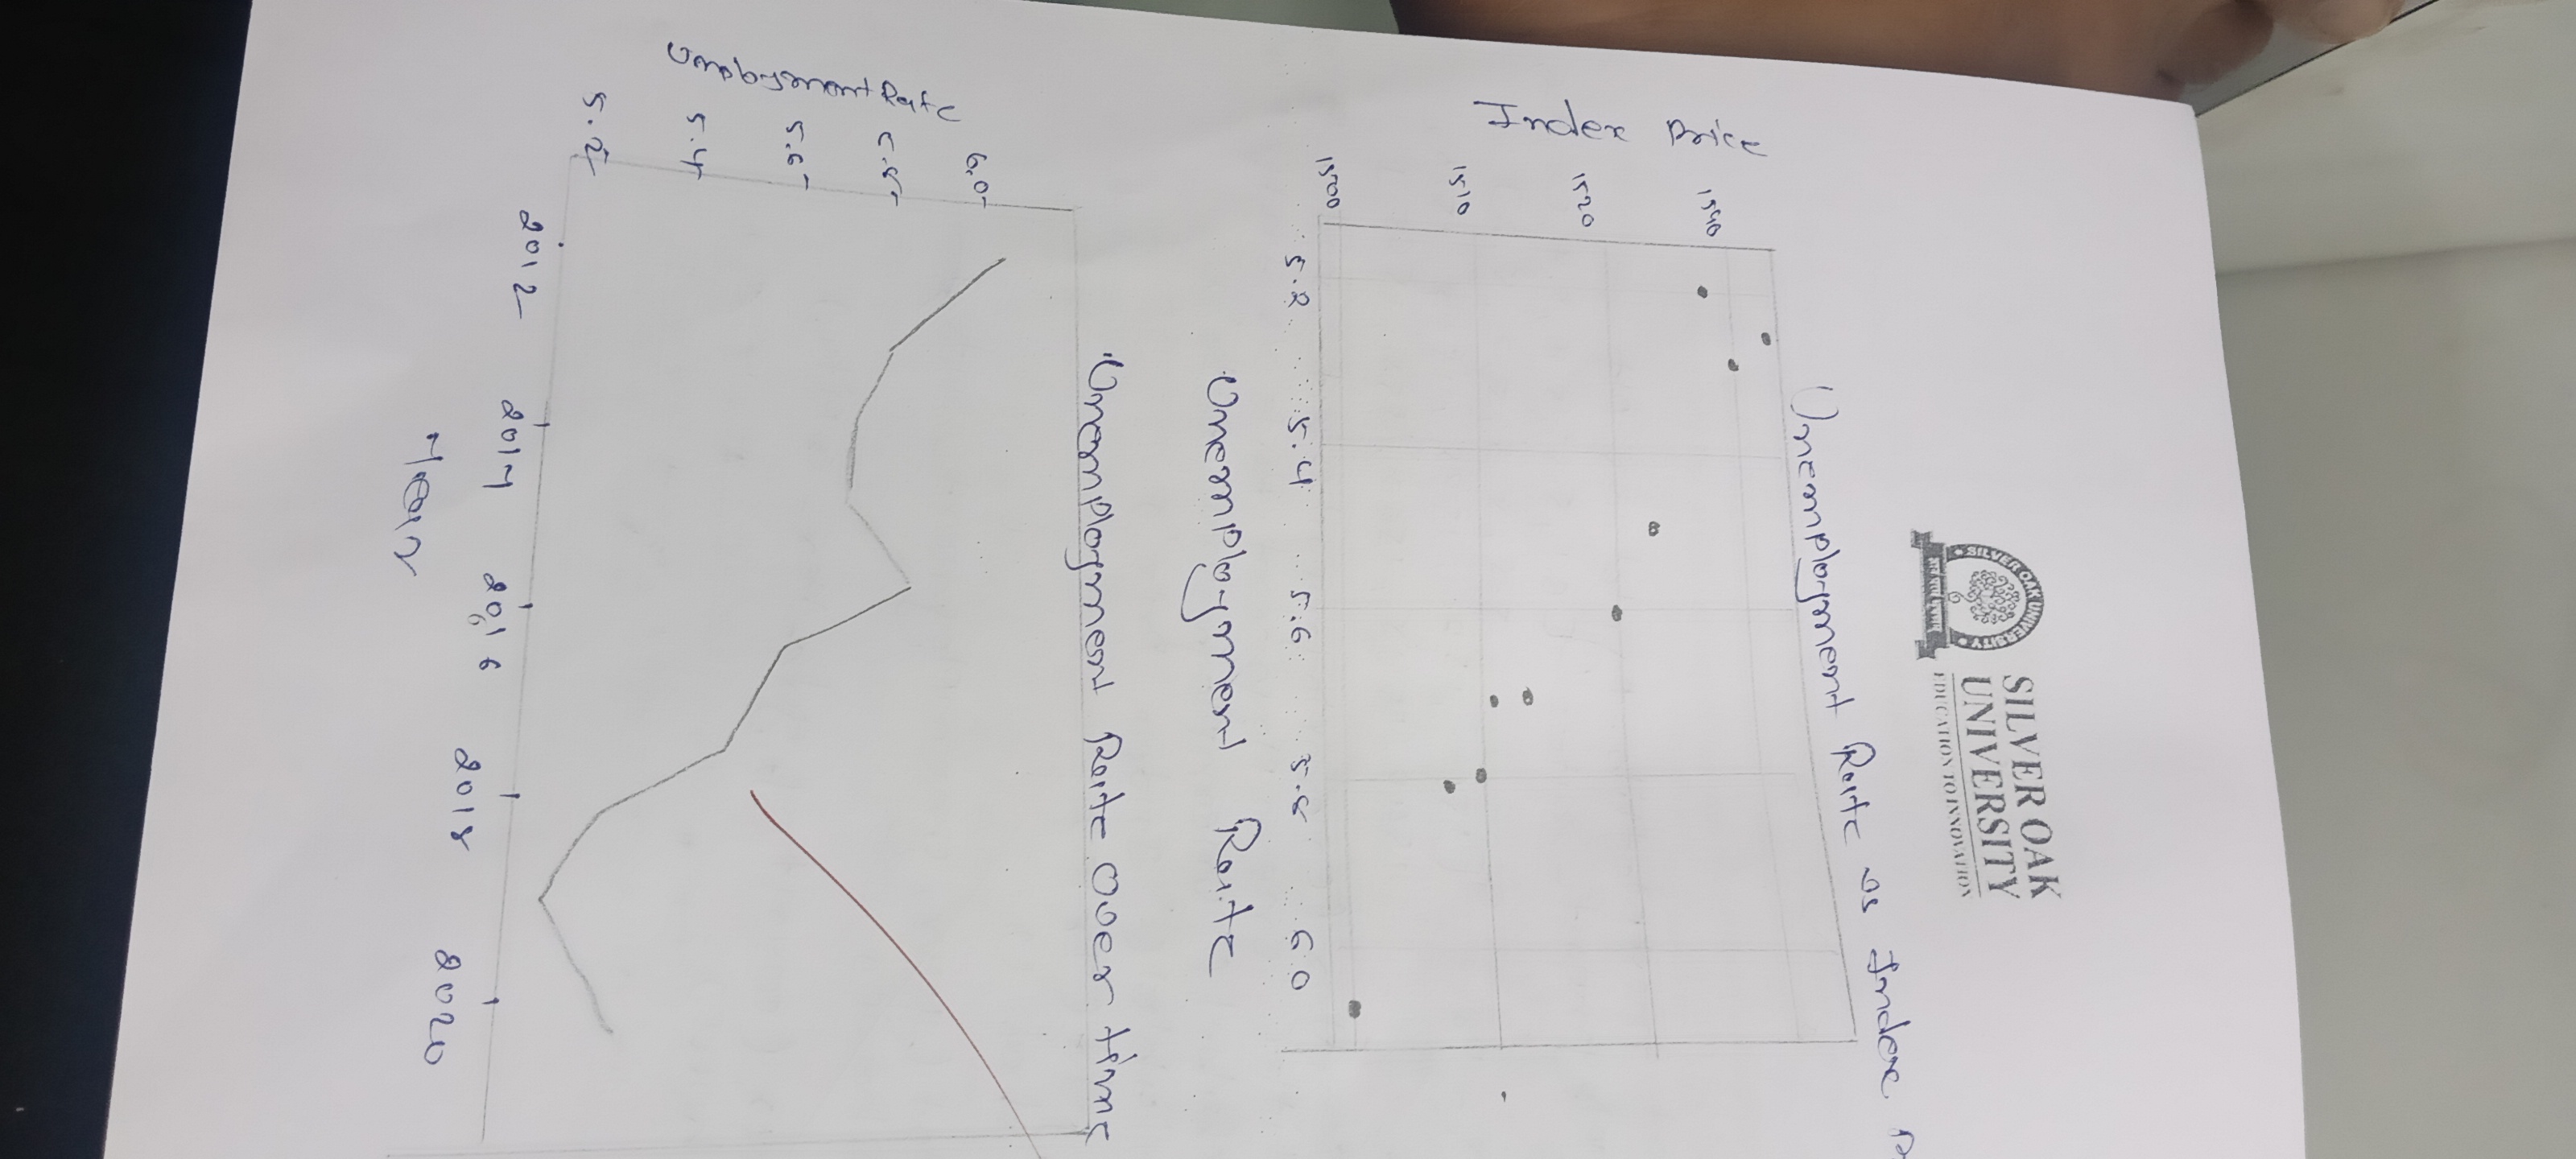 SILVER OAK
UNIVERSITY
EDUCATION TO INNOVATION
Unemployment Rate vs Index P
Index Price
1540
1520
1510
1500
5.2 5.4 5.6 5.8 6.0
Unemployment Rate
Unemployment Rate Over time
Unmployment Rate
6.0
5.8
5.6
5.4
5.2
2012 2014 2016 2018 2020
Year